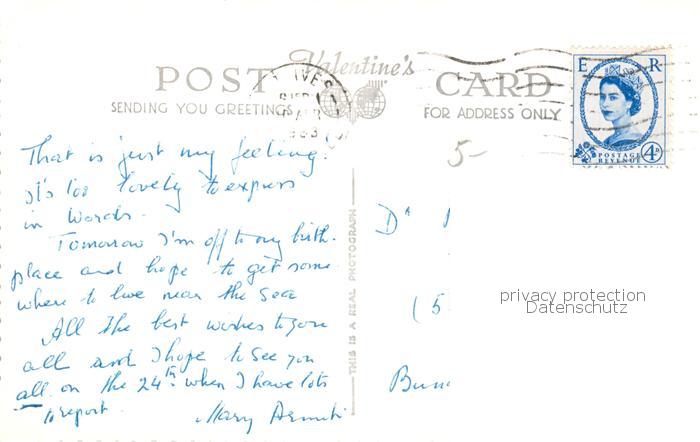 POST Valentine's CARD
SENDING YOU GREETINGS FOR ADDRESS ONLY
IVES
E R
POSTAGE
REVENUE 4D
5-
That is just my feeling.
It's too lovely to express
in Words.
Tomorrow I'm off to my birth-
place and hope to get some-
where to live near the sea
All the best wishes to you
all and I hope to see you
all on the 24th when I have lots
to report.
Mary
THIS IS A REAL PHOTOGRAPH
(5
privacy protection
Datenschutz